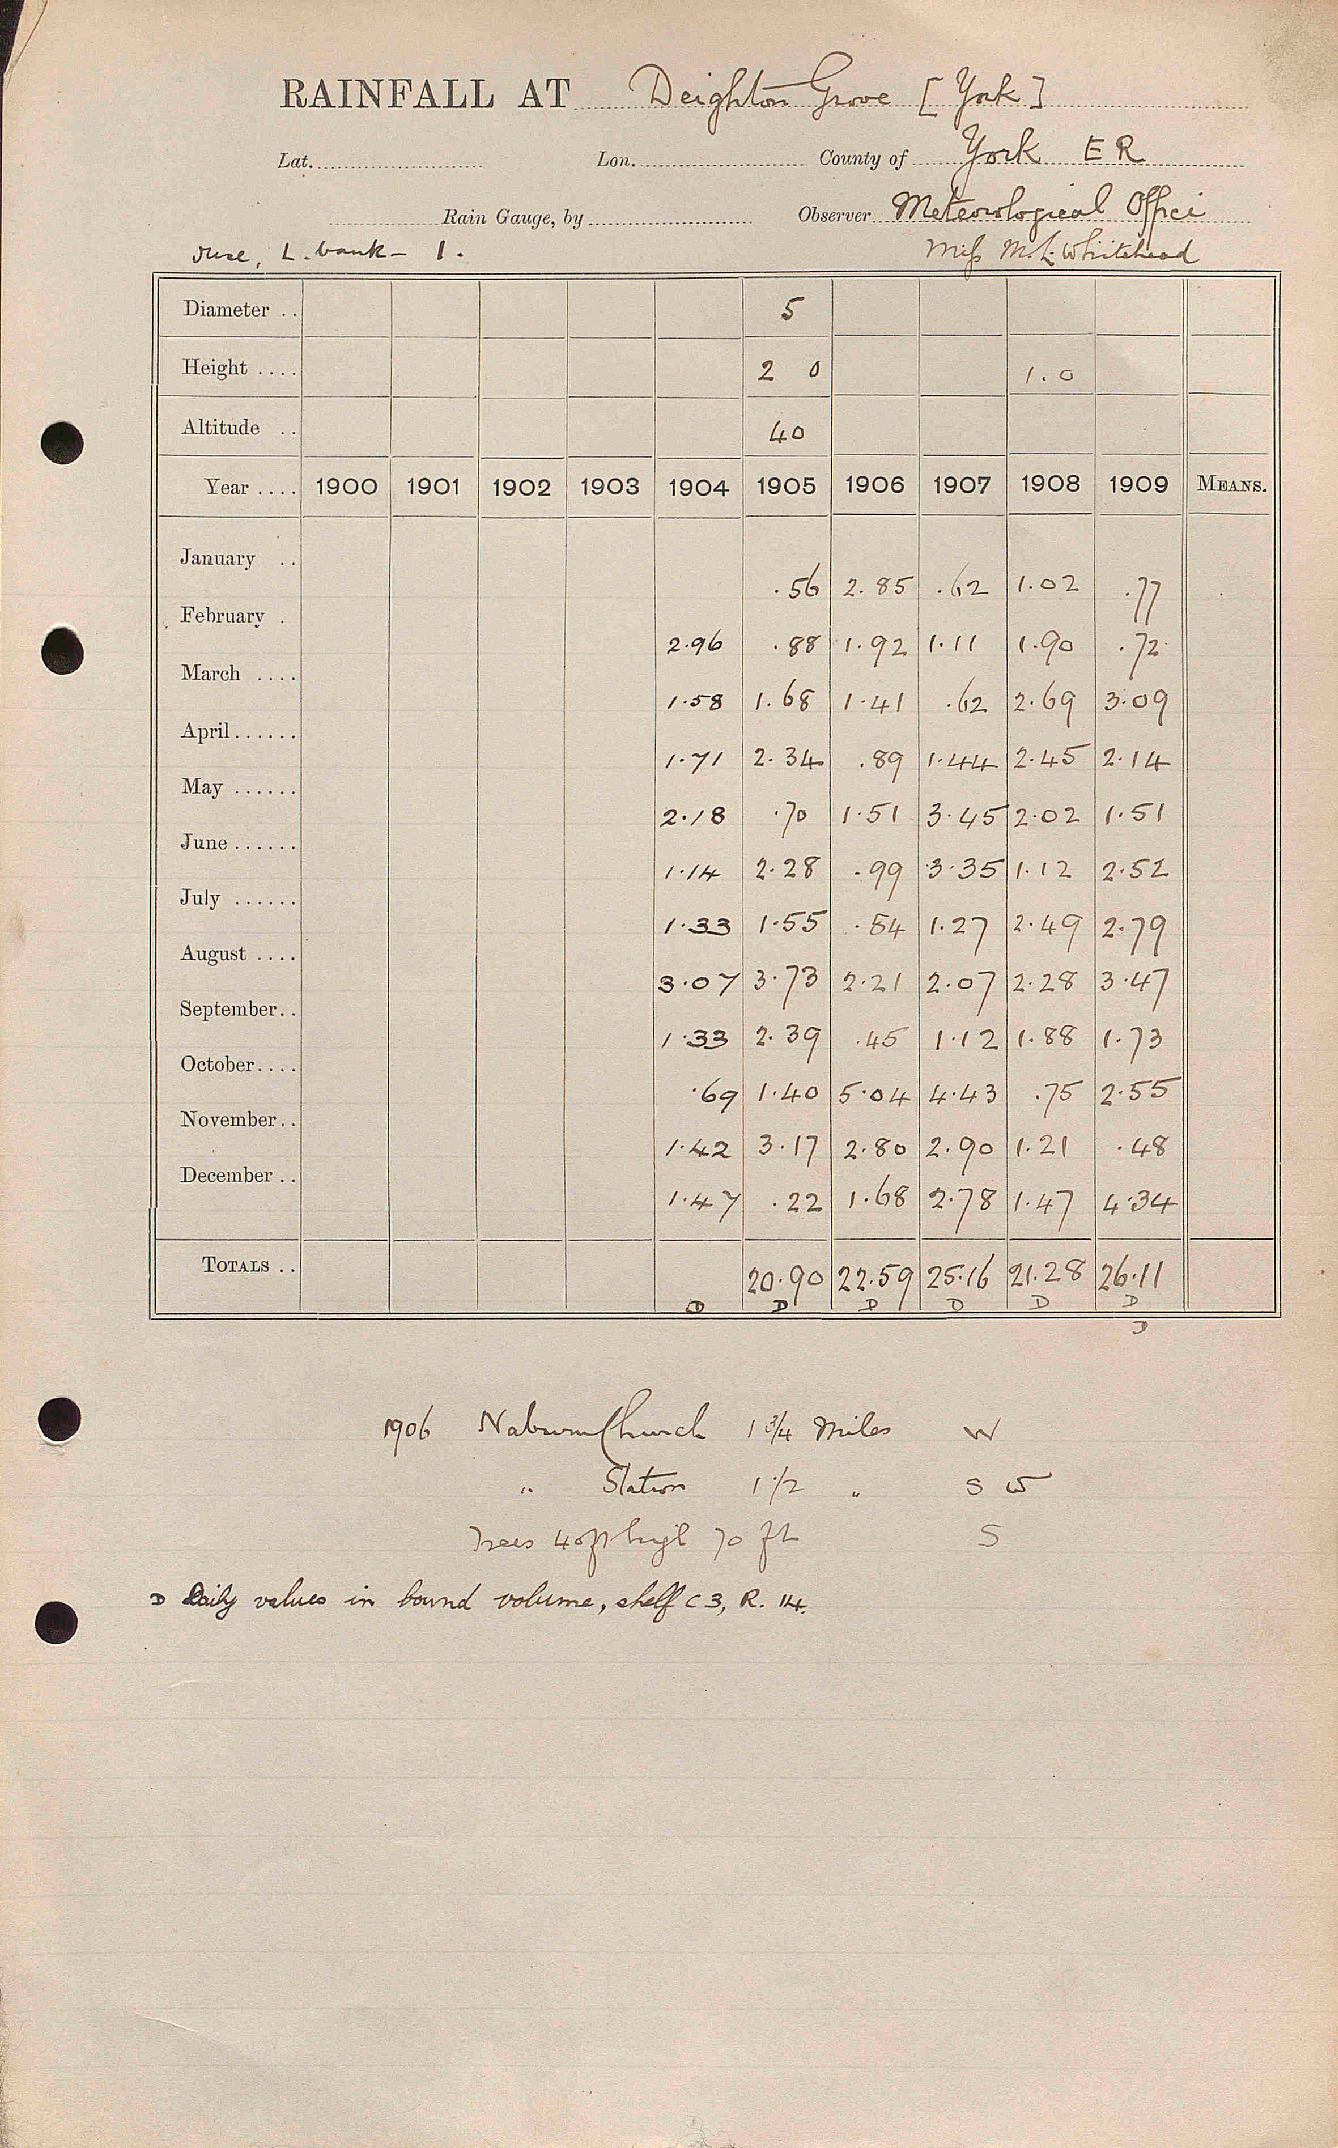 RAINFALL AT Deighton Grove [York]
Lat. Lon. County of York ER
Rain Gauge, by Observer Meteorological Office
Ouse, L. bank - 1. Miss M.L. Whitehead
Diameter .. 5
Height .... 2 0 1.0
Altitude .. 40
Year .... 1900 1901 1902 1903 1904 1905 1906 1907 1908 1909 MEANS.
January .. .56 2.85 .62 1.02 .77
February . 2.96 .88 1.92 1.11 1.90 .72
March .... 1.58 1.68 1.41 .62 2.69 3.09
April...... 1.71 2.34 .89 1.44 2.45 2.14
May ...... 2.18 .70 1.51 3.45 2.02 1.51
June...... 1.14 2.28 .99 3.35 1.12 2.52
July ...... 1.33 1.55 .84 1.27 2.49 2.79
August .... 3.07 3.73 2.21 2.07 2.28 3.47
September.. 1.33 2.39 .45 1.12 1.88 1.73
October.... .69 1.40 5.04 4.43 .75 2.55
November.. 1.42 3.17 2.80 2.90 1.21 .48
December .. 1.47 .22 1.68 2.78 1.47 4.34
TOTALS .. 20.90 22.59 25.16 21.28 26.11
D D D D D D
D
1906 Naburn Church 1 3/4 Miles W
" Station 1 1/2 " S W
Trees 40 ft high 70 ft S
D Daily values in bound volume, shelf C3, R. 114.